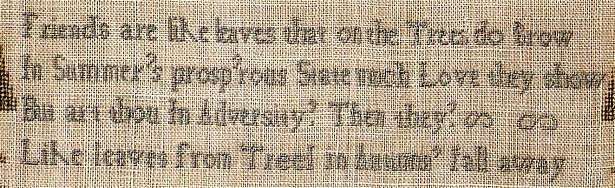 Friends are like leaves that on the Trees do Grow
In Summer's prosp'rous State much Love they show
But art thou In Adversity? Then they?
Like leaves from Trees in Autumn' fall away